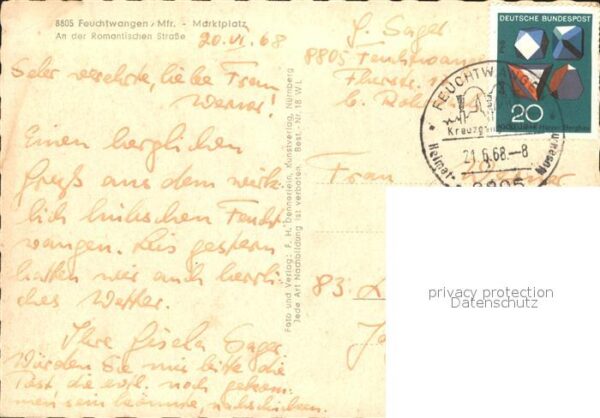 8805 Feuchtwangen/Mfr. - Marktplatz
An der Romantischen Straße
20.VI.68
Sehr verehrte, liebe Frau
Werner!
Einen herzlichen
Gruß aus dem wirk-
lich hübschen Feucht-
wangen. Bis gestern
hatten wir auch herrli-
ches Wetter.
Ihre Gisela Sager.
Würden Sie mir bitte die
Post die evtl. noch gekom-
men sein könnte, nachschicken.
Foto und Verlag: F. H. Dennerlein, Kunstverlag, Nürnberg
Jede Art Nachbildung ist verboten. Best.-Nr. 18 WL
G. Sager
8805 Feuchtwan
b.
DEUTSCHE BUNDESPOST
20
FEUCHTWANGEN
Kreuzgan
Heimat-
Museum
21.6.68.-8
8805
Frau
83
privacy protection
Datenschutz